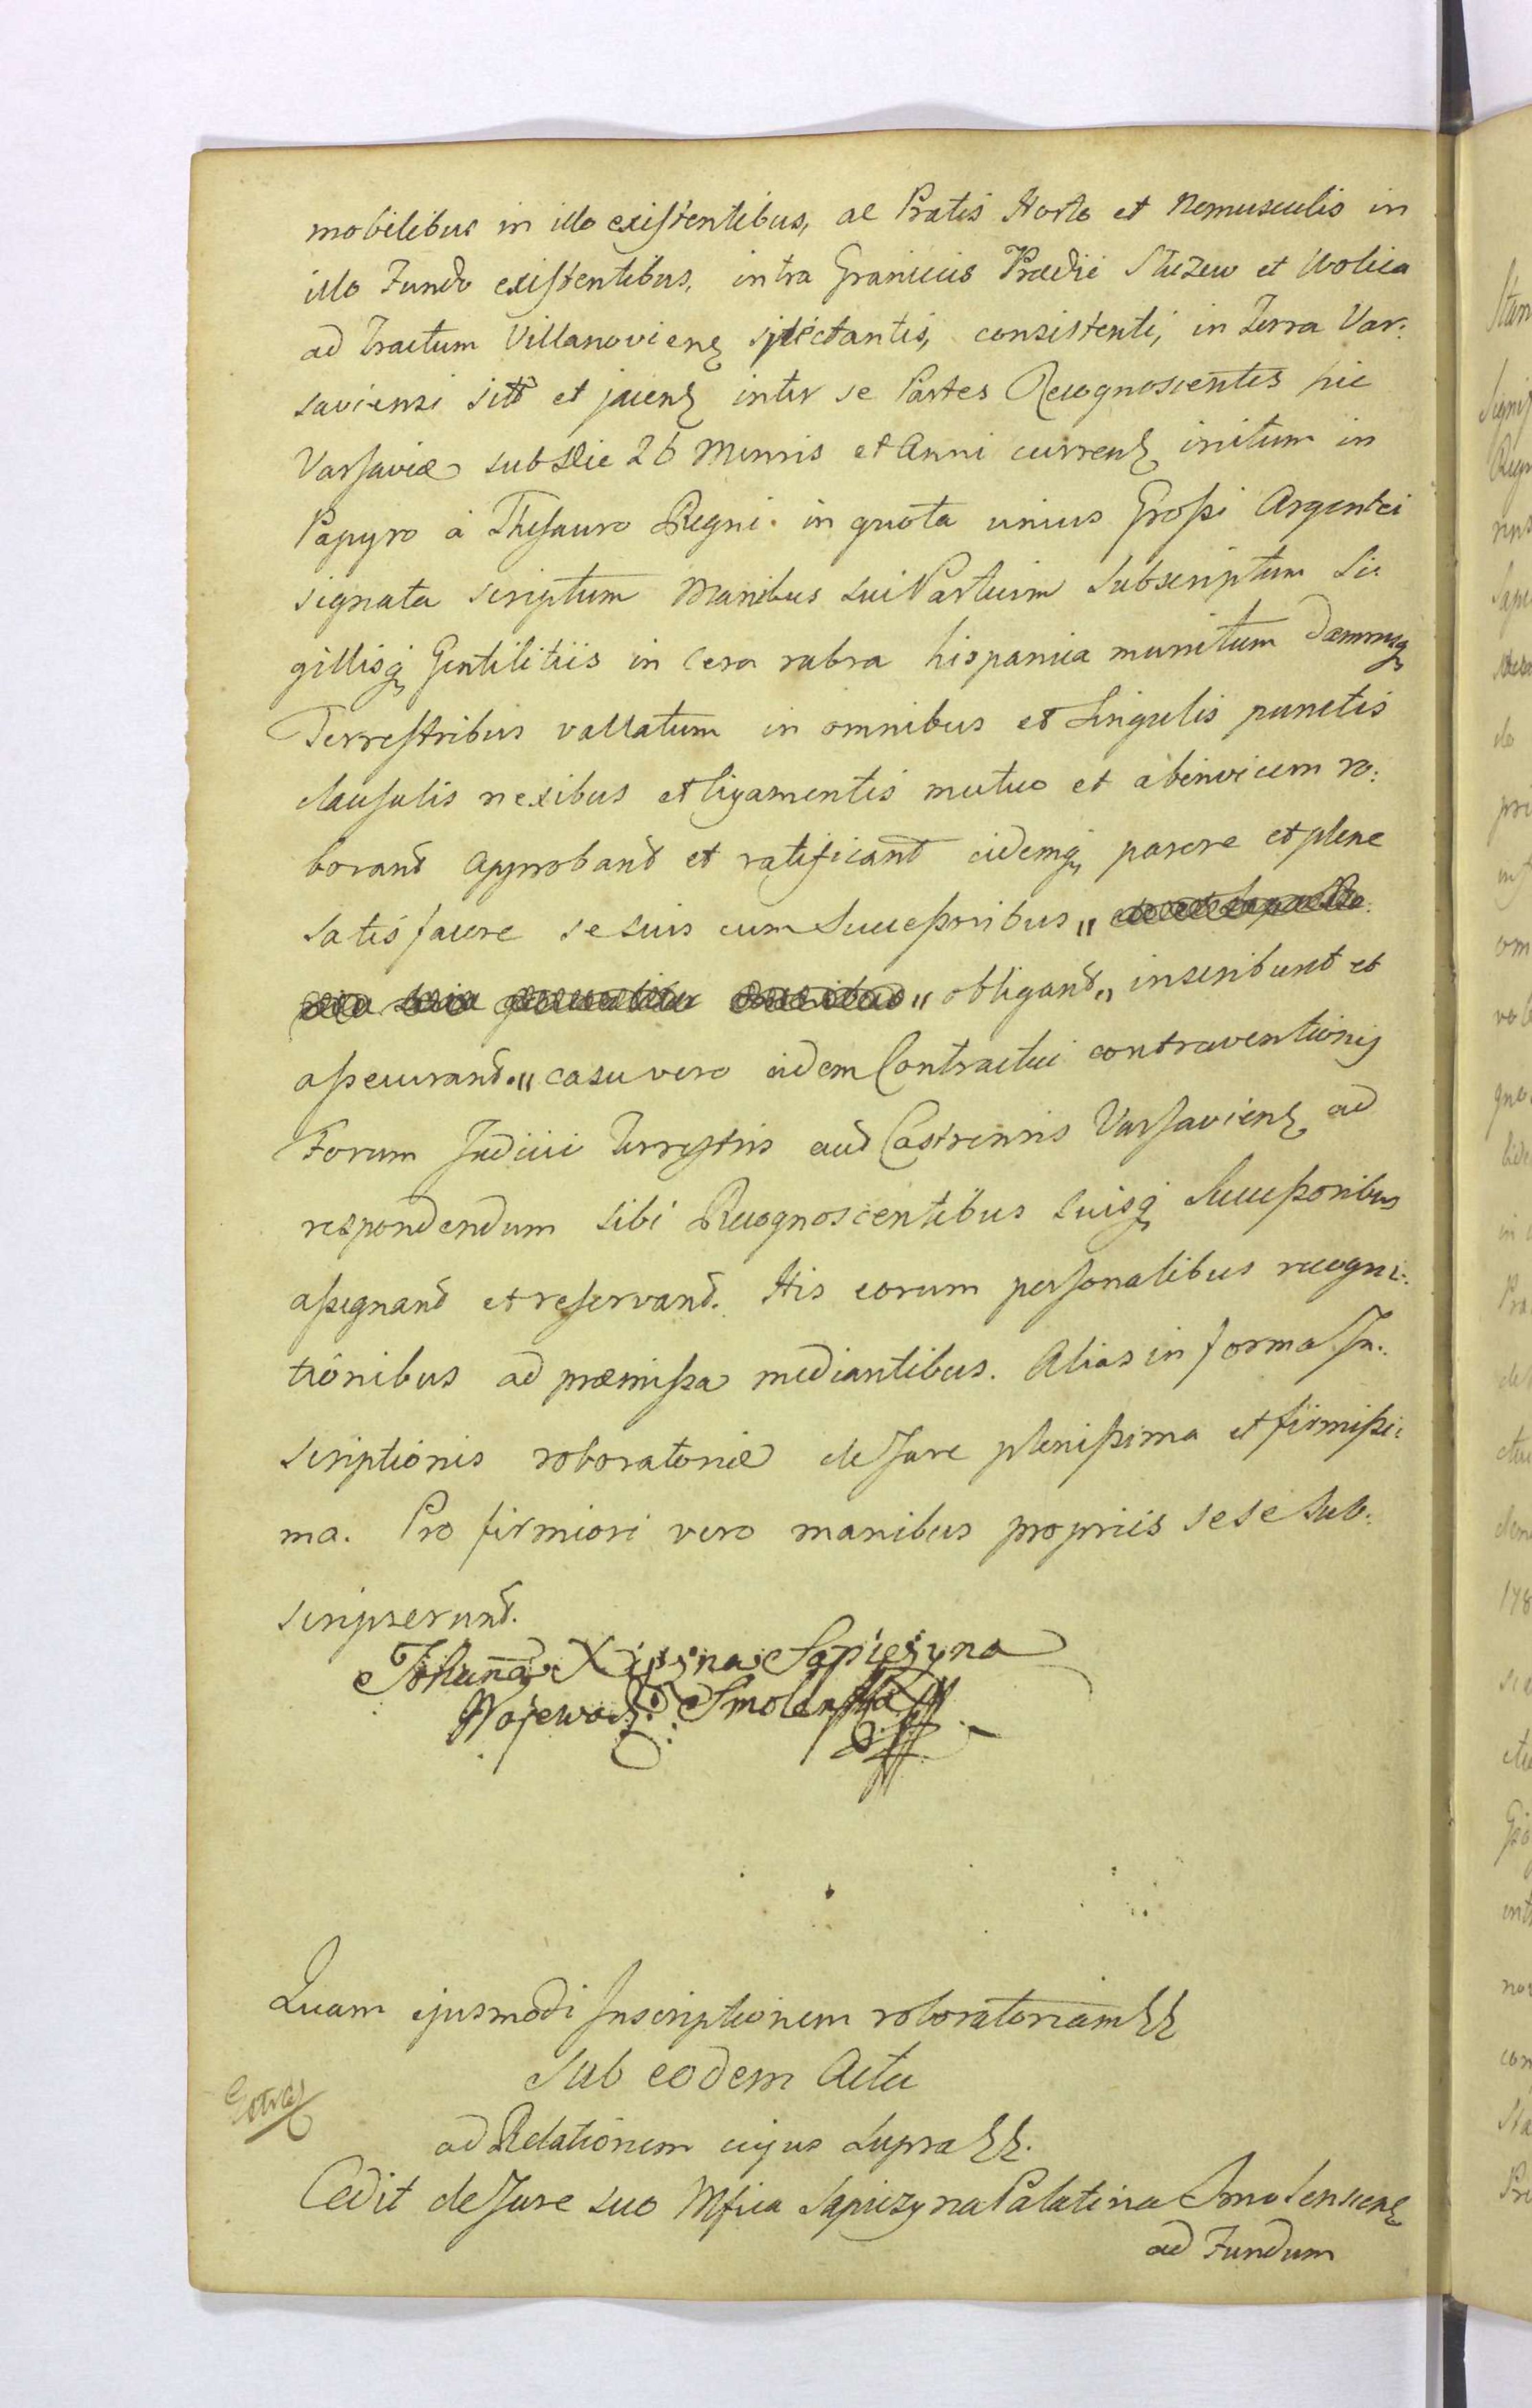 mobilibus in illo existentibus, ac Pratis Horto et Nemusculis in
illo Fundo existentibus, intra Granicies Prædii Służew et Wolica
ad Tractum Villanoviens spectantis, consistenti, in Terra Var:
saviensi sitt et jacens inter se Partes Recognoscentes hic
Varsaviæ sub Die 26 Mensis et Anni currens initum in
Papyro à Thesauro Regni in quota unius Grossi Argentei
signata scriptum Manibus sui Partium Subscriptum Si:
gillisq Gentilitiis in Cera rubra hispanica munitum
Terrestribus vallatum in omnibus et Singulis punctis
clausulis nexibus et ligamentis mutuo et abinvicem ro:
borand approband et ratificand eidemq parere et plene
satisfacere se suis cum Successoribus "
" obligand " inscribunt et
assecurand. " casu vero eidem Contractui contraventionis
Forum Judicii Terrestris aut Castrensis Varsaviens ad
respondendum sibi Recognoscentibus suisq Successoribus
assignand et reservand. His eorum personalibus recogni:
tionibus ad præmissa mediantibus. Alias in forma In:
scriptionis roboratoriæ de Jure plenissima et firmissi:
ma. Pro firmiori vero manibus propriis sese sub:
scripserunt.
Johanna Xiężna Sapieżyna
Wojewodz: Smolenska
Quam ejusmodi Inscriptionem roboratoriam
Sub eodem Actu
ad Relationem cujus supra
Cedit de Jure suo Mfica Sapiezyna Palatina Smolensciens
ad Fundum